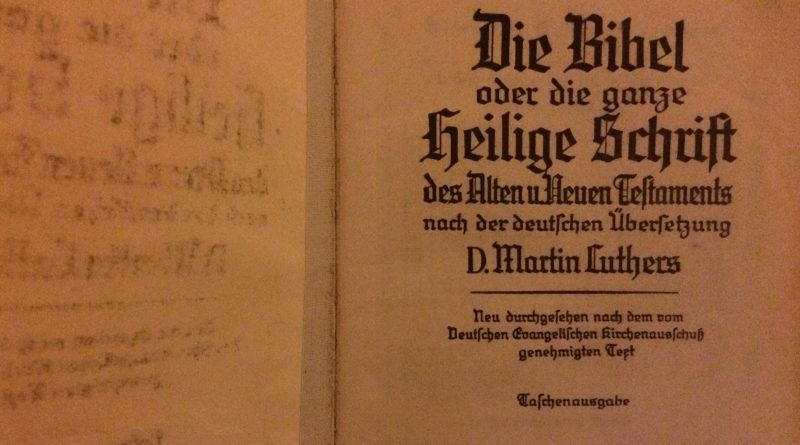 Die Bibel
oder die ganze
Heilige Schrift
des Alten u. Neuen Teſtaments
nach der deutſchen Überſetzung
D. Martin Luthers
Neu durchgeſehen nach dem vom
Deutſchen Evangeliſchen Kirchenausſchuß
genehmigten Text
Taſchenausgabe